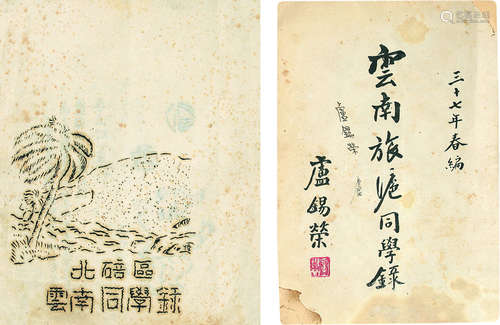 北碚區
雲南同學錄
三十七年春編
雲南旅滬同學錄
盧錫榮
盧錫榮